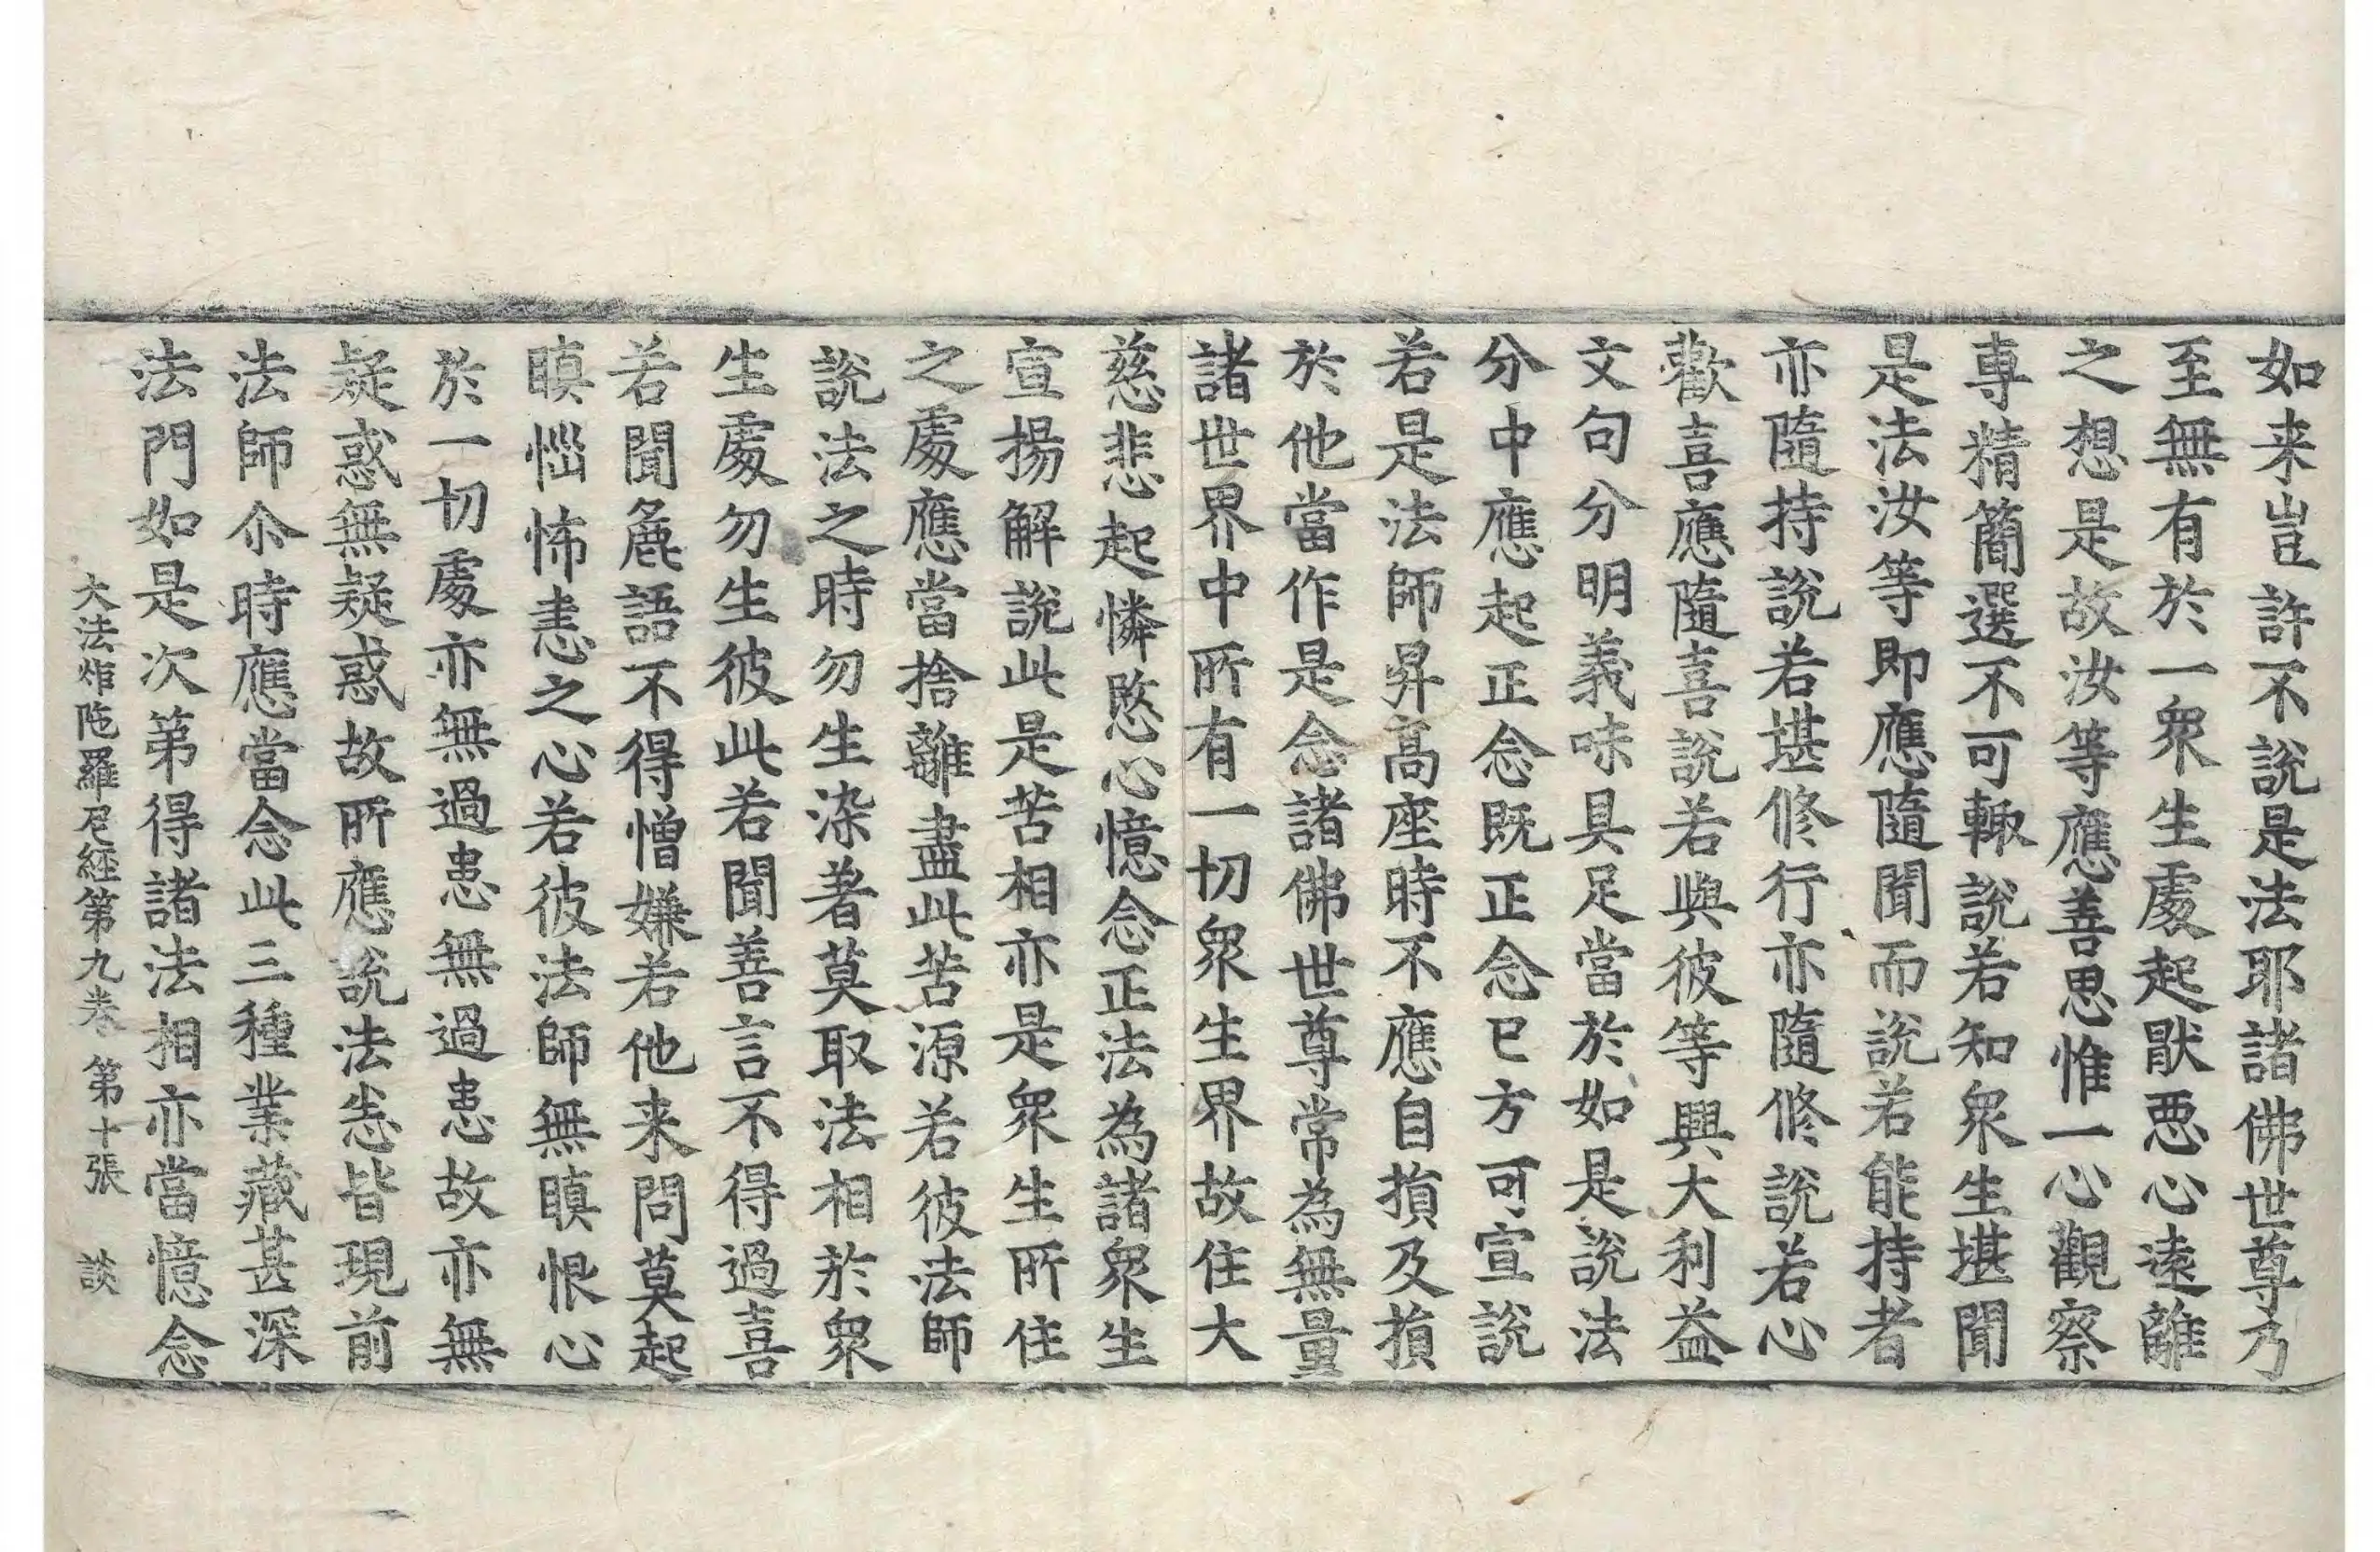 如来豈許不說是法耶諸佛世尊乃
至無有於一衆生處起猒惡心遠離
之想是故汝等應善思惟一心觀察
專精簡選不可輙說若知衆生堪聞
是法汝等即應隨聞而說若能持者
亦隨持說若堪修行亦隨修說若心
歡喜應隨喜說若與彼等興大利益
文句分明義味具足當於如是說法
分中應起正念既正念已方可宣說
若是法師昇高座時不應自損及損
於他當作是念諸佛世尊常為無量
諸世界中所有一切衆生界故住大
慈悲起憐愍心憶念正法為諸衆生
宣揚解說此是苦相亦是衆生所住
之處應當捨離盡此苦源若彼法師
說法之時勿生染著莫取法相於衆
生處勿生彼此若聞善言不得過喜
若聞麁語不得憎嫌若他来問莫起
瞋惱怖恚之心若彼法師無瞋恨心
於一切處亦無過患無過患故亦無
疑惑無疑惑故所應說法悉皆現前
法師尒時應當念此三種業藏甚深
法門如是次第得諸法相亦當憶念
大法炬陁羅尼經第九卷 第十張 談